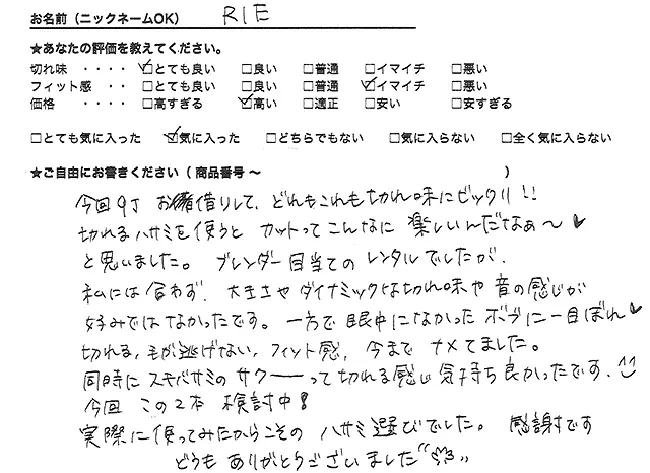 お名前（ニックネームOK） RIE
★あなたの評価を教えてください。
切れ味 ・・・・ ☑とても良い □良い □普通 □イマイチ □悪い
フィット感 ・・ □とても良い □良い □普通 ☑イマイチ □悪い
価格 ・・・・ □高すぎる ☑高い □適正 □安い □安すぎる
□とても気に入った ☑気に入った □どちらでもない □気に入らない □全く気に入らない
★ご自由にお書きください（ 商品番号〜 ）
今回9丁 お借りして、どれもこれも切れ味にビックリ!!
切れるハサミを使うと カットってこんなに 楽しいんだなぁ〜♥
と思いました。 ブレンダー目当ての レンタルでしたが、
私には合わず、大きさや ダイナミックな切れ味や 音の感じが
好みでは なかったです。一方で 眼中になかった ボブに一目ぼれ♥
切れる，毛が逃げない，フィット感，今まで ナメてました。
同時に スキバサミの サクーーって切れる感じ 気持ち良かったです。
今回 この2本 検討中！
実際に使ってみたからこその ハサミ選びでした。 感謝です
どうも ありがとうございました